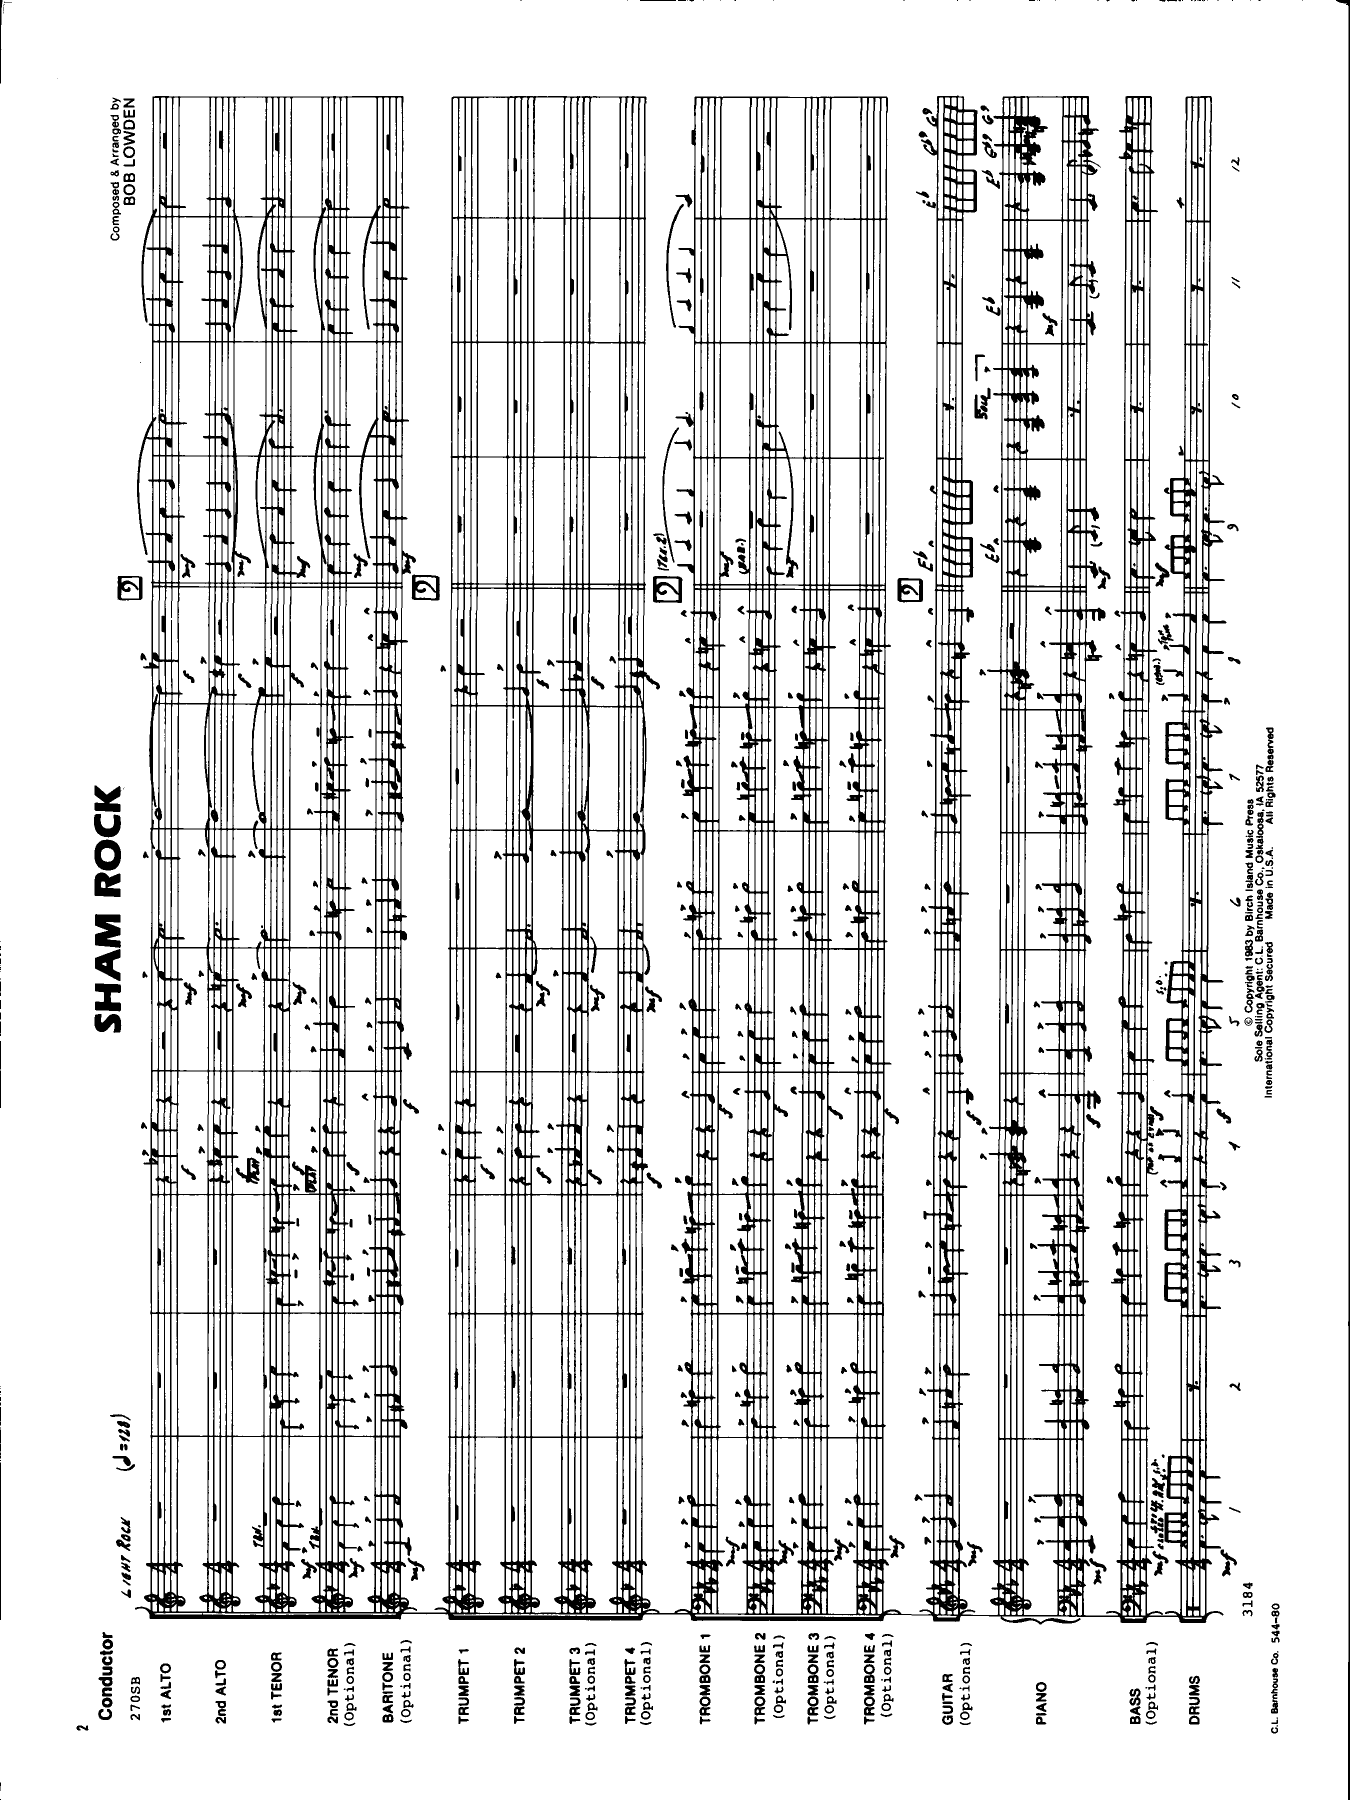 2
Conductor
270SB
SHAM ROCK
Composed & Arranged by
BOB LOWDEN
LIGHT ROCK (♩=128)
1st ALTO
2nd ALTO
1st TENOR
2nd TENOR
(Optional)
BARITONE
(Optional)
TRUMPET 1
TRUMPET 2
TRUMPET 3
(Optional)
TRUMPET 4
(Optional)
TROMBONE 1
TROMBONE 2
(Optional)
TROMBONE 3
(Optional)
TROMBONE 4
(Optional)
GUITAR
(Optional)
PIANO
BASS
(Optional)
DRUMS
TBN.
TBN.
PLAY
PLAY
mf
f
9
9
9
9
(TEN.2)
(BAR.)
Eb
Eb Gb9 G9
Eb
SOLO
Eb
Eb Gb9 G9
S.D.
S.D.
1 2 3 4 5 6 7 8 9 10 11 12
3184
© Copyright 1983 by Birch Island Music Press
Sole Selling Agent: C.L. Barnhouse Co., Oskaloosa, IA 52577
International Copyright Secured Made in U.S.A. All Rights Reserved
C.L. Barnhouse Co. 544-80